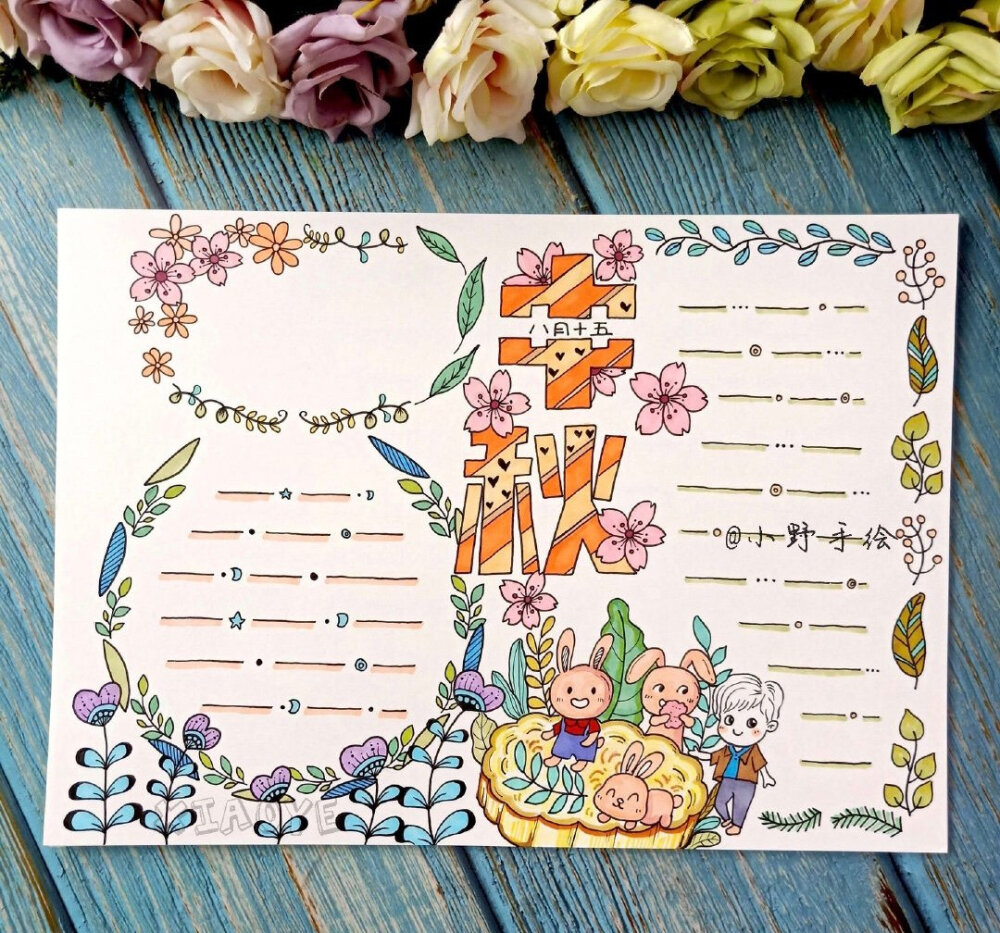 中
八月十五
秋
@小野手绘
XIAOYE